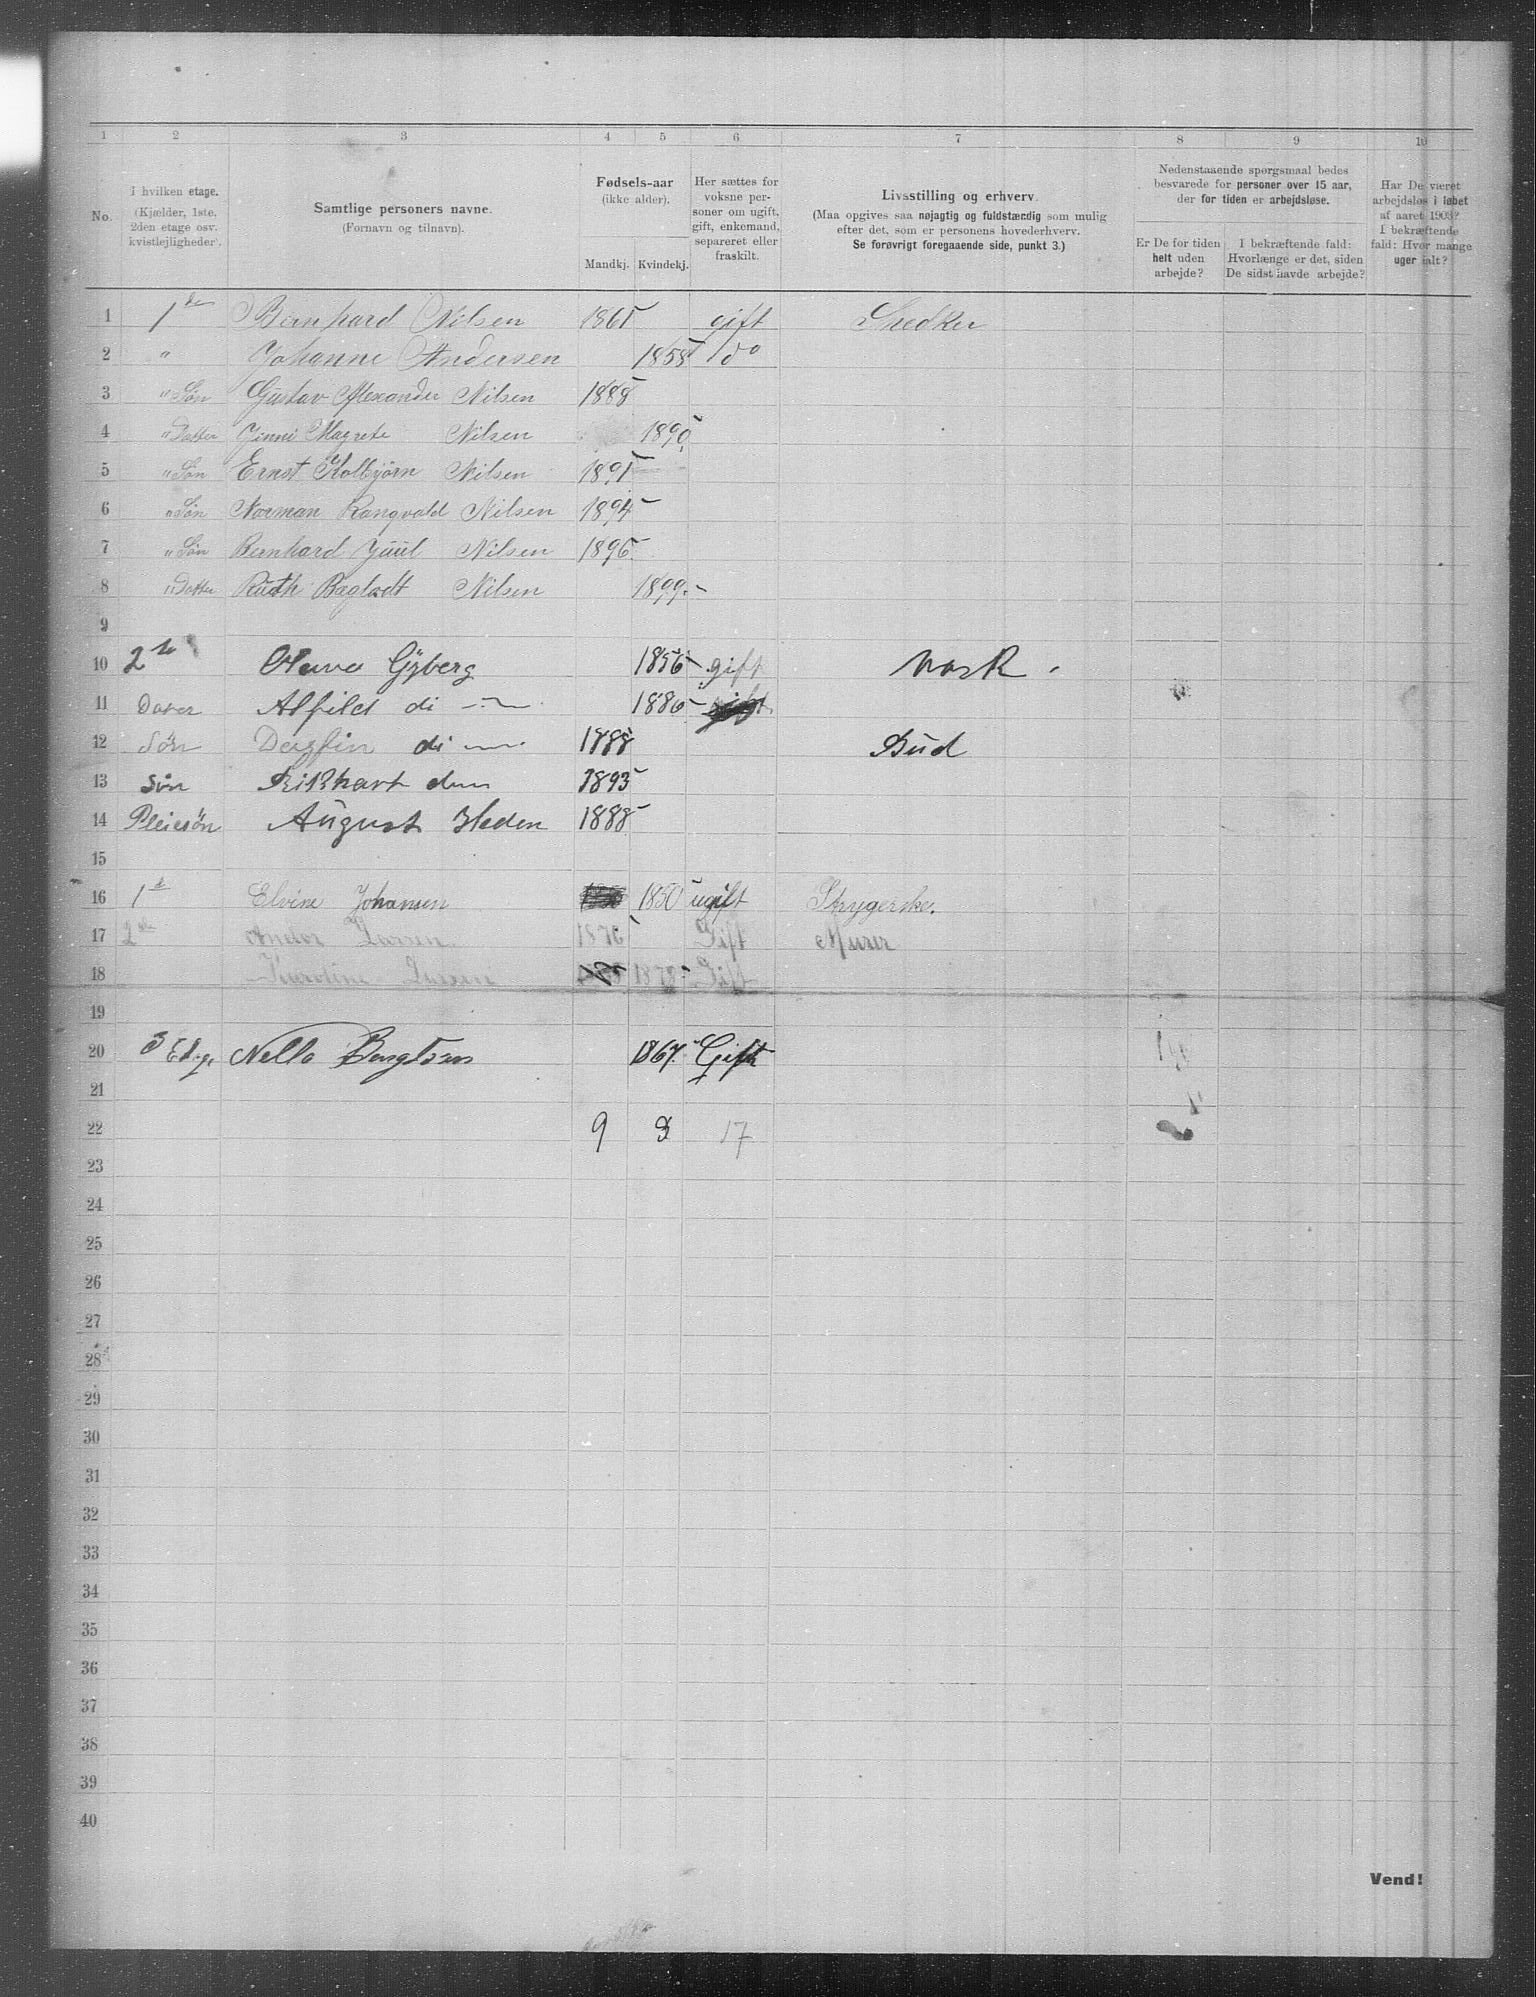 1 2 3 4 5 6 7 8 9 10
No.
I hvilken etage.
(Kjælder, 1ste,
2den etage osv.
kvistlejligheder).
Samtlige personers navne.
(Fornavn og tilnavn).
Fødsels-aar
(ikke alder).
Mandkj. Kvindekj.
Her sættes for
voksne per-
soner om ugift,
gift, enkemand,
separeret eller
fraskilt.
Livsstilling og erhverv.
(Maa opgives saa nøjagtig og fuldstændig som mulig
efter det, som er personens hovederhverv.
Se forøvrigt foregaaende side, punkt 3.)
Nedenstaaende spørgsmaal bedes
besvarede for personer over 15 aar,
der for tiden er arbejdsløse.
Er De for tiden
helt uden
arbejde?
I bekræftende fald:
Hvorlænge er det, siden
De sidst havde arbejde?
Har De været
arbejdsløs i løbet
af aaret 1903?
I bekræftende
fald: Hvor mange
uger ialt?
1 1 Bernhard Nilsen 1861 gift Snedker
2 " Johanne Andersen 1858 do
3 " Søn Gustav Alexander Nilsen 1888
4 " Datter Jinni Magrete Nilsen 1890
5 " Søn Ernst Kolbjörn Nilsen 1891
6 " Søn Norman Rangvald Nilsen 1894
7 " Søn Bernhard Juul Nilsen 1896
8 " Datter Ruth Nilsen 1899
9
10 2 Gyberg 1856 gift Vask
11 Alfild di 1886
12 Søn Dagfin di 1888 Bud
13 Søn Rikhart 1893
14 Pleiesøn August Heden 1888
15
16 1 Elvine Johansen 1850 ugift Strygerske.
17 2 Andor Larsen 1876 Gift Murer
18 Karoline Larsen 1878 Gift
19
20 3 Nella Bengtson 1867 Gift
21
22 9 8 17
23
24
25
26
27
28
29
30
31
32
33
34
35
36
37
38
39
40
Vend!